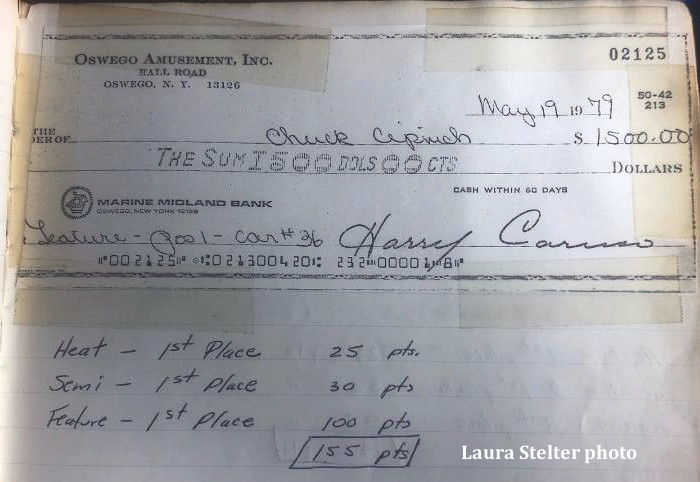 OSWEGO AMUSEMENT, INC. 02125
HALL ROAD
OSWEGO, N. Y. 13126
50-42
213
May 19 1979
THE
DER OF Chuck Ciprich $ 1500.00
THE SUM 1500 DOLS 00 CTS DOLLARS
CASH WITHIN 60 DAYS
MARINE MIDLAND BANK
OSWEGO, NEW YORK 13126
Feature - - Car # 36 Harry Caruso
⑈002125⑈ ⑆021300420⑆ 232⑈00001⑈8⑈
Heat - 1st Place 25 pts.
Semi - 1st Place 30 pts
Feature - 1st Place 100 pts
155 pts
Laura Stelter photo